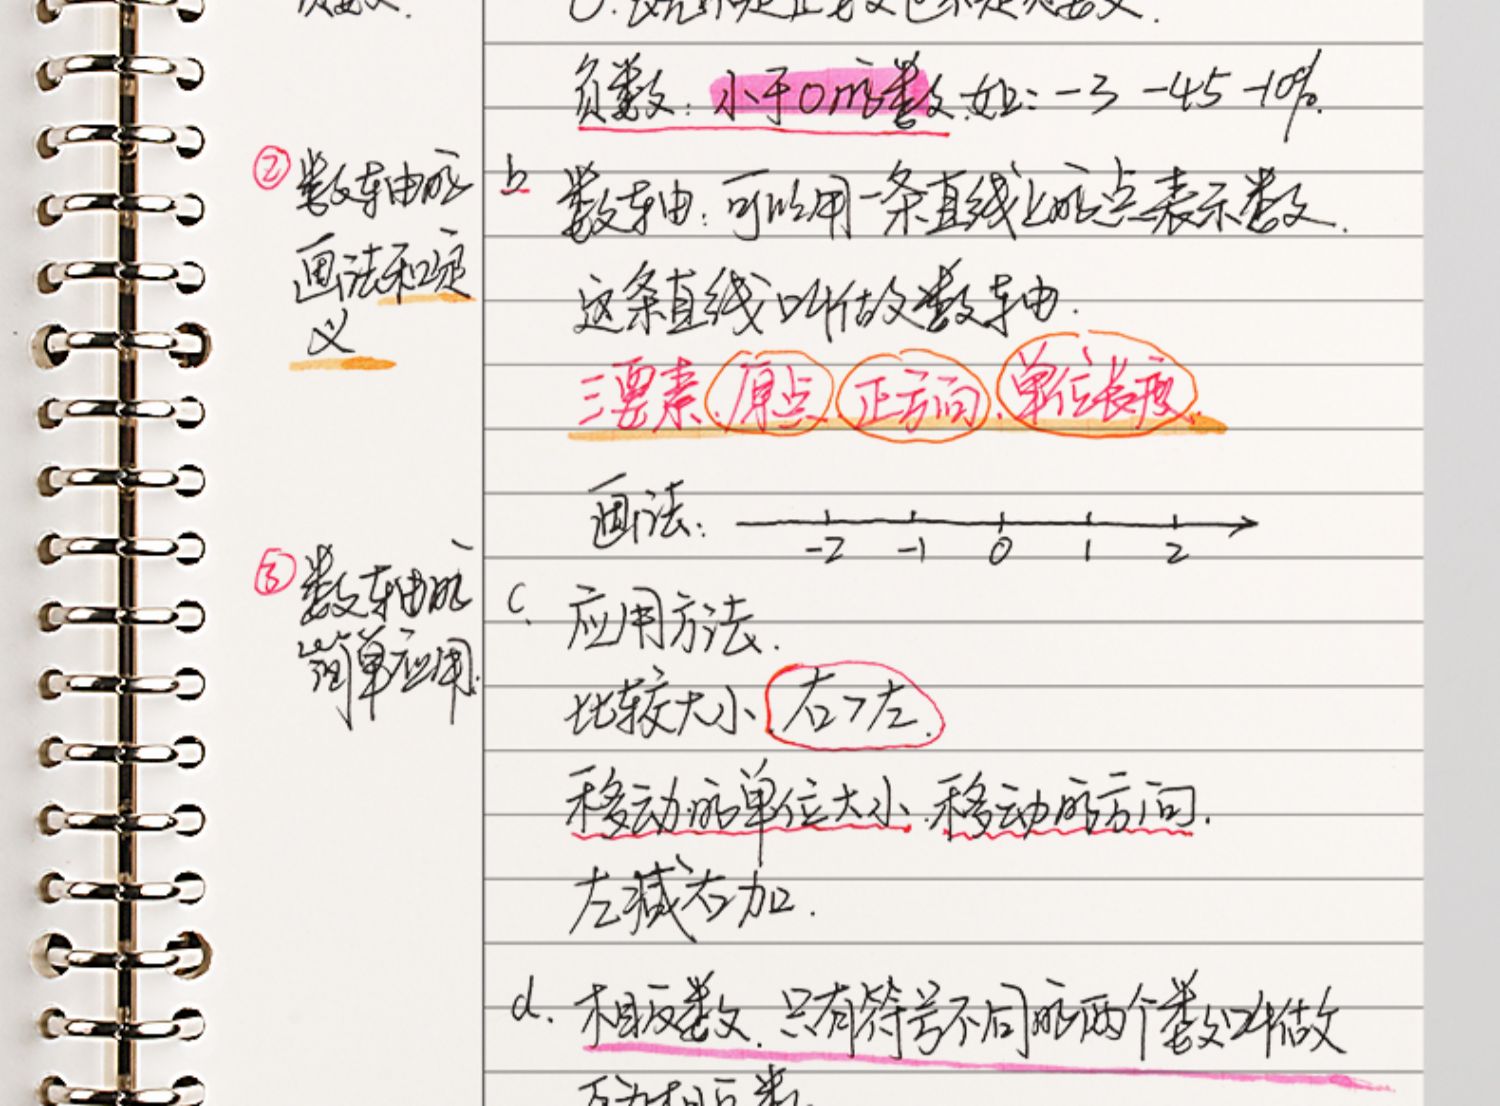 0:既不是正数也不是负数.
负数：小于0的数.如：-3 -45 -10%.
② 数轴的
画法和定
义
b 数轴：可以用一条直线上的点表示数.
这条直线叫做数轴.
三要素.原点.正方向.单位长度.
画法：
-2 -1 0 1 2
③ 数轴的
简单应用.
c. 应用方法.
比较大小.右>左.
移动的单位大小.移动的方向.
左减右加.
d. 相反数.只有符号不同的两个数叫做
互为相反数.